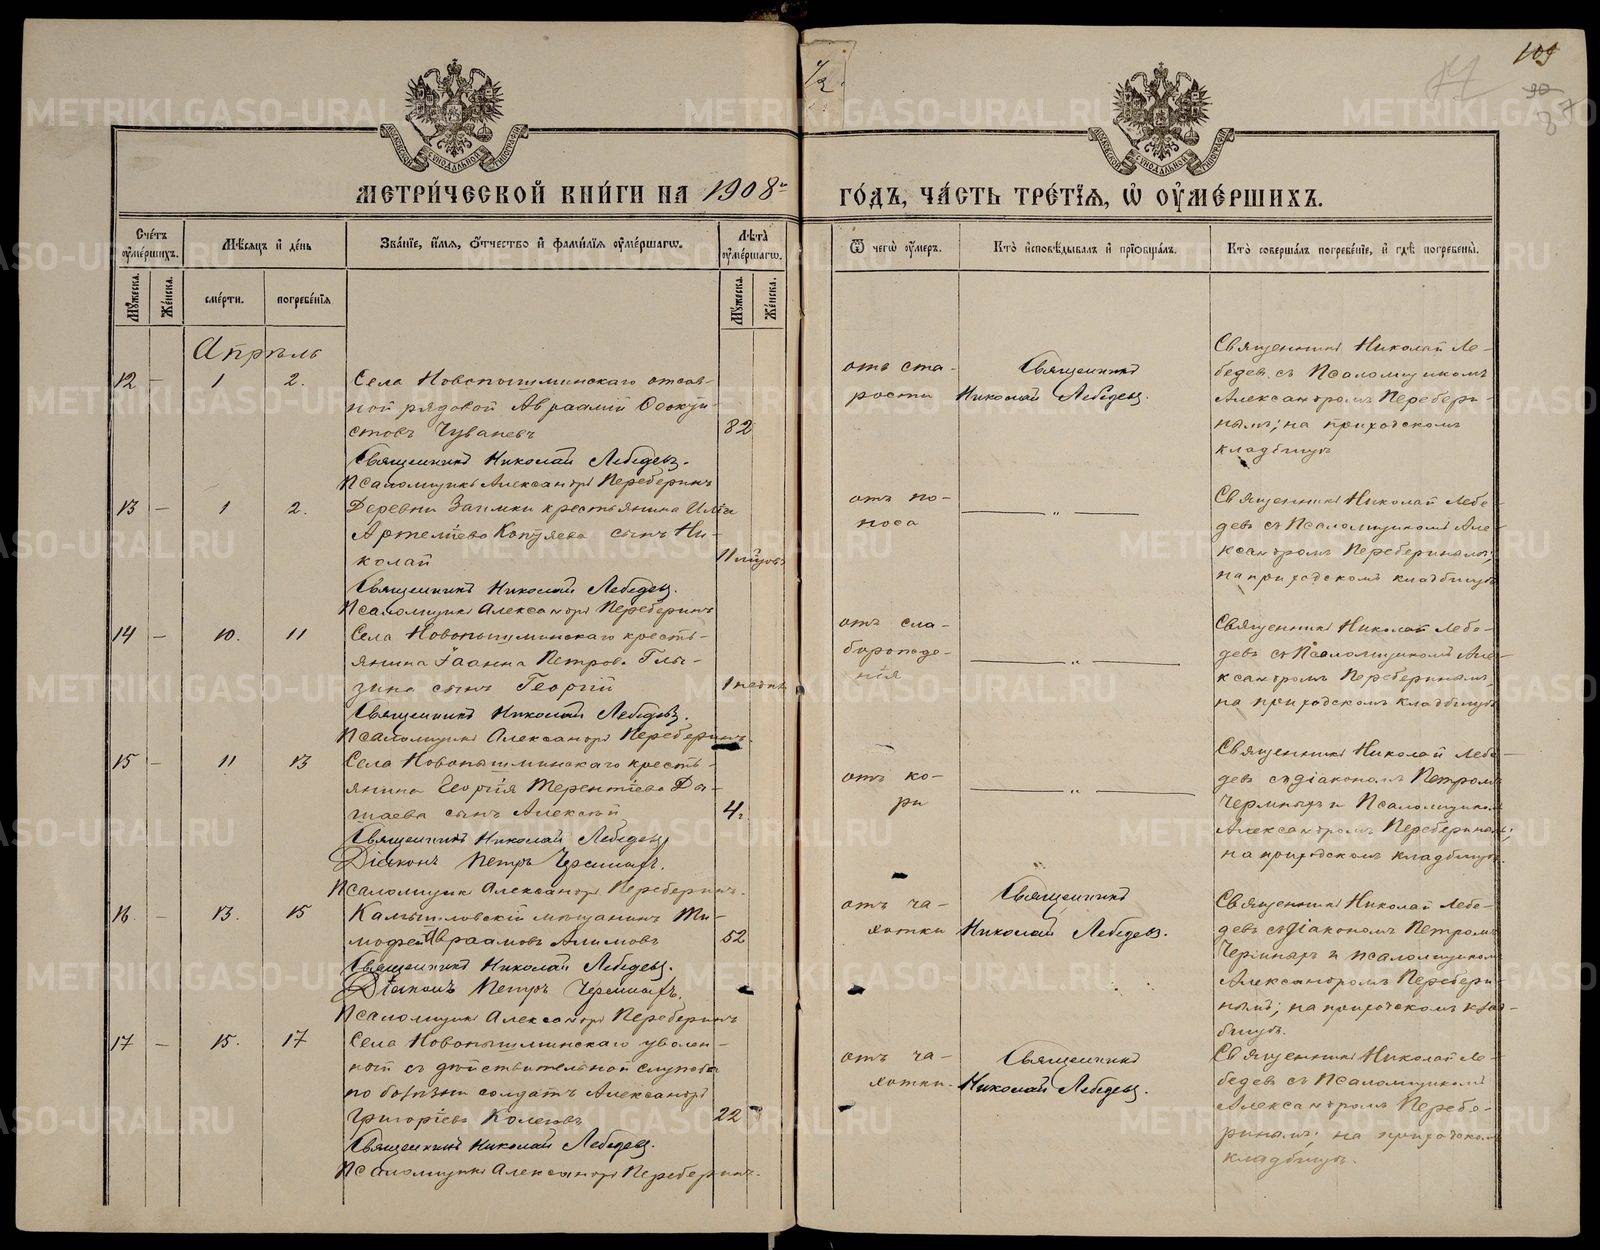 109
МЕТРИ́ЧЕСКОЙ КНИ́ГИ НА 1908й ГО́ДЪ, ЧА́СТЬ ТРЕ́ТІѦ, Ѽ ОУ҆МЕ́РШИХЪ.
Сче́тъ оу҆ме́ршихъ.
Мѣ́сѧцъ и҆ де́нь
Зва́ніе, и҆́мѧ, ѻ҆́тчество и҆ фами́лїѧ оу҆ме́ршагѡ.
Лѣ́та оу҆ме́ршагѡ.
Ѿ чегѡ̀ оу҆́меръ.
Кто̀ и҆сповѣ́дывалъ и҆ прїѡбща́лъ.
Кто̀ соверша́лъ погребе́нїе, и҆ гдѣ̀ погребены̀.
Мꙋ́жеска.
Же́нска.
сме́рти.
погребе́нїѧ
Мꙋ́жеска.
Же́нска.
Апрѣль
12 — 1 2.
Села Новопышминскаго отстав-
ной рядовой Авраамій
стовъ Чуваевъ
82
Священникъ Николай Лебедевъ.
Псаломщикъ Александръ Переберинъ
отъ ста-
рости
Священникъ
Николай Лебедевъ.
Священникъ Николай Ле-
бедев съ Псаломщикомъ
Александромъ Перебери-
нымъ; на приходскомъ
кладбищѣ
13 — 1 2.
Деревни Заимки крестьянина Ильи
Артемьева сынъ Ни-
колай
Священникъ Николай Лебедевъ.
Псаломщикъ Александръ Переберинъ
отъ по-
носа
— „ —
Священникъ Николай Лебе-
девъ съ Псаломщикомъ Але-
ксандромъ Переберинымъ;
на приходскомъ кладбищѣ
14 — 10. 11
Села Новопышминскаго кресть-
янина Іоанна Петрова Глы-
зина сынъ Георгій
Священникъ Николай Лебедевъ.
Псаломщикъ Александръ Переберинъ.
отъ сла-
борожде-
нія
— „ —
Священникъ Николай Лебе-
девъ съ Псаломщикомъ Але-
ксандромъ Переберинымъ,
на приходскомъ кладбищѣ
15 — 11 13
Села Новопышминскаго кресть-
янина Георгія Терентіева
сынъ Алексѣй
4г.
Священникъ Николай Лебедевъ
Діаконъ Петръ Черемныхъ.
Псаломщикъ Александръ Переберинъ.
отъ ко-
ри
— „ —
Священникъ Николай Лебе-
девъ съ діакономъ Петромъ
и Псаломщикомъ
Александромъ Переберинымъ;
на приходскомъ кладбищѣ.
16. — 13. 15
Камышловскій мѣщанинъ Ти-
мофей Авраамовъ Алимовъ
52
Священникъ Николай Лебедевъ.
Діаконъ Петръ Черемныхъ.
Псаломщикъ Александръ Переберинъ
отъ ча-
хотки
Священникъ
Николай Лебедевъ.
Священникъ Николай Лебе-
девъ съ діакономъ Петромъ
и псаломщикомъ
Александромъ Перебери-
нымъ; на приходскомъ клад-
бищѣ.
17 — 15. 17
Села Новопышминскаго уволен-
ной съ дѣйствительной службы
по болѣзни солдатъ Александръ
Григорьевъ
22
Священникъ Николай Лебедевъ.
Псаломщикъ Александръ Переберинъ.
отъ ча-
хотки.
Священникъ
Николай Лебедевъ.
Священникъ Николай Ле-
бедевъ съ Псаломщикомъ
Александромъ Перебе-
ринымъ; на приходскомъ
кладбищѣ.
METRIKI.GASO-URAL.RU